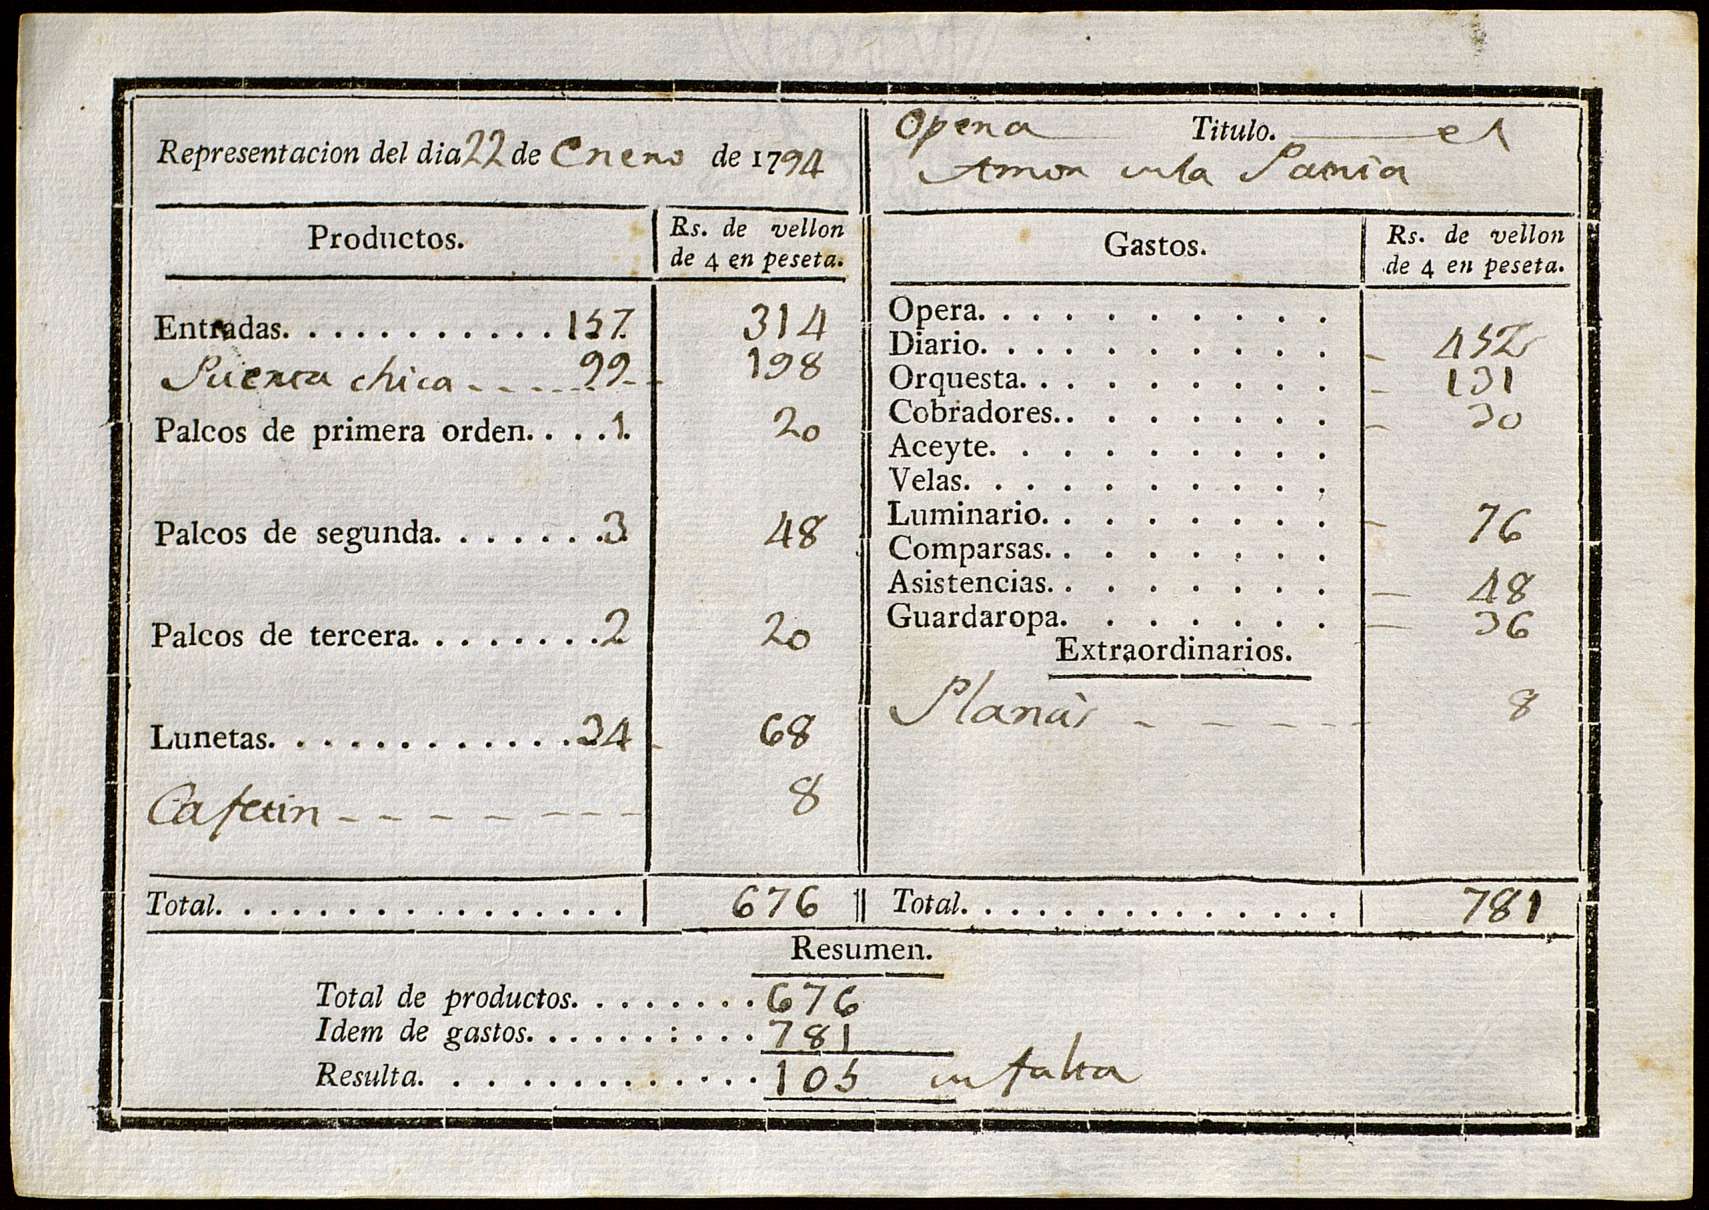 Representacion del dia 22 de Enero de 1794
Opera Titulo. el
Amor en la Patria
Productos. Rs. de vellon
de 4 en peseta.
Entradas. 157. 314
Puerta chica 99 198
Palcos de primera orden. 1. 20
Palcos de segunda. 3. 48
Palcos de tercera. 2 20
Lunetas. 34 68
Cafetin 8
Total. 676
Gastos. Rs. de vellon
de 4 en peseta.
Opera.
Diario. 452
Orquesta. 131
Cobradores. 30
Aceyte.
Velas.
Luminario. 76
Comparsas.
Asistencias. 48
Guardaropa. 36
Extraordinarios.
8
Total. 781
Resumen.
Total de productos. 676
Idem de gastos. 781
Resulta. 105 en falta